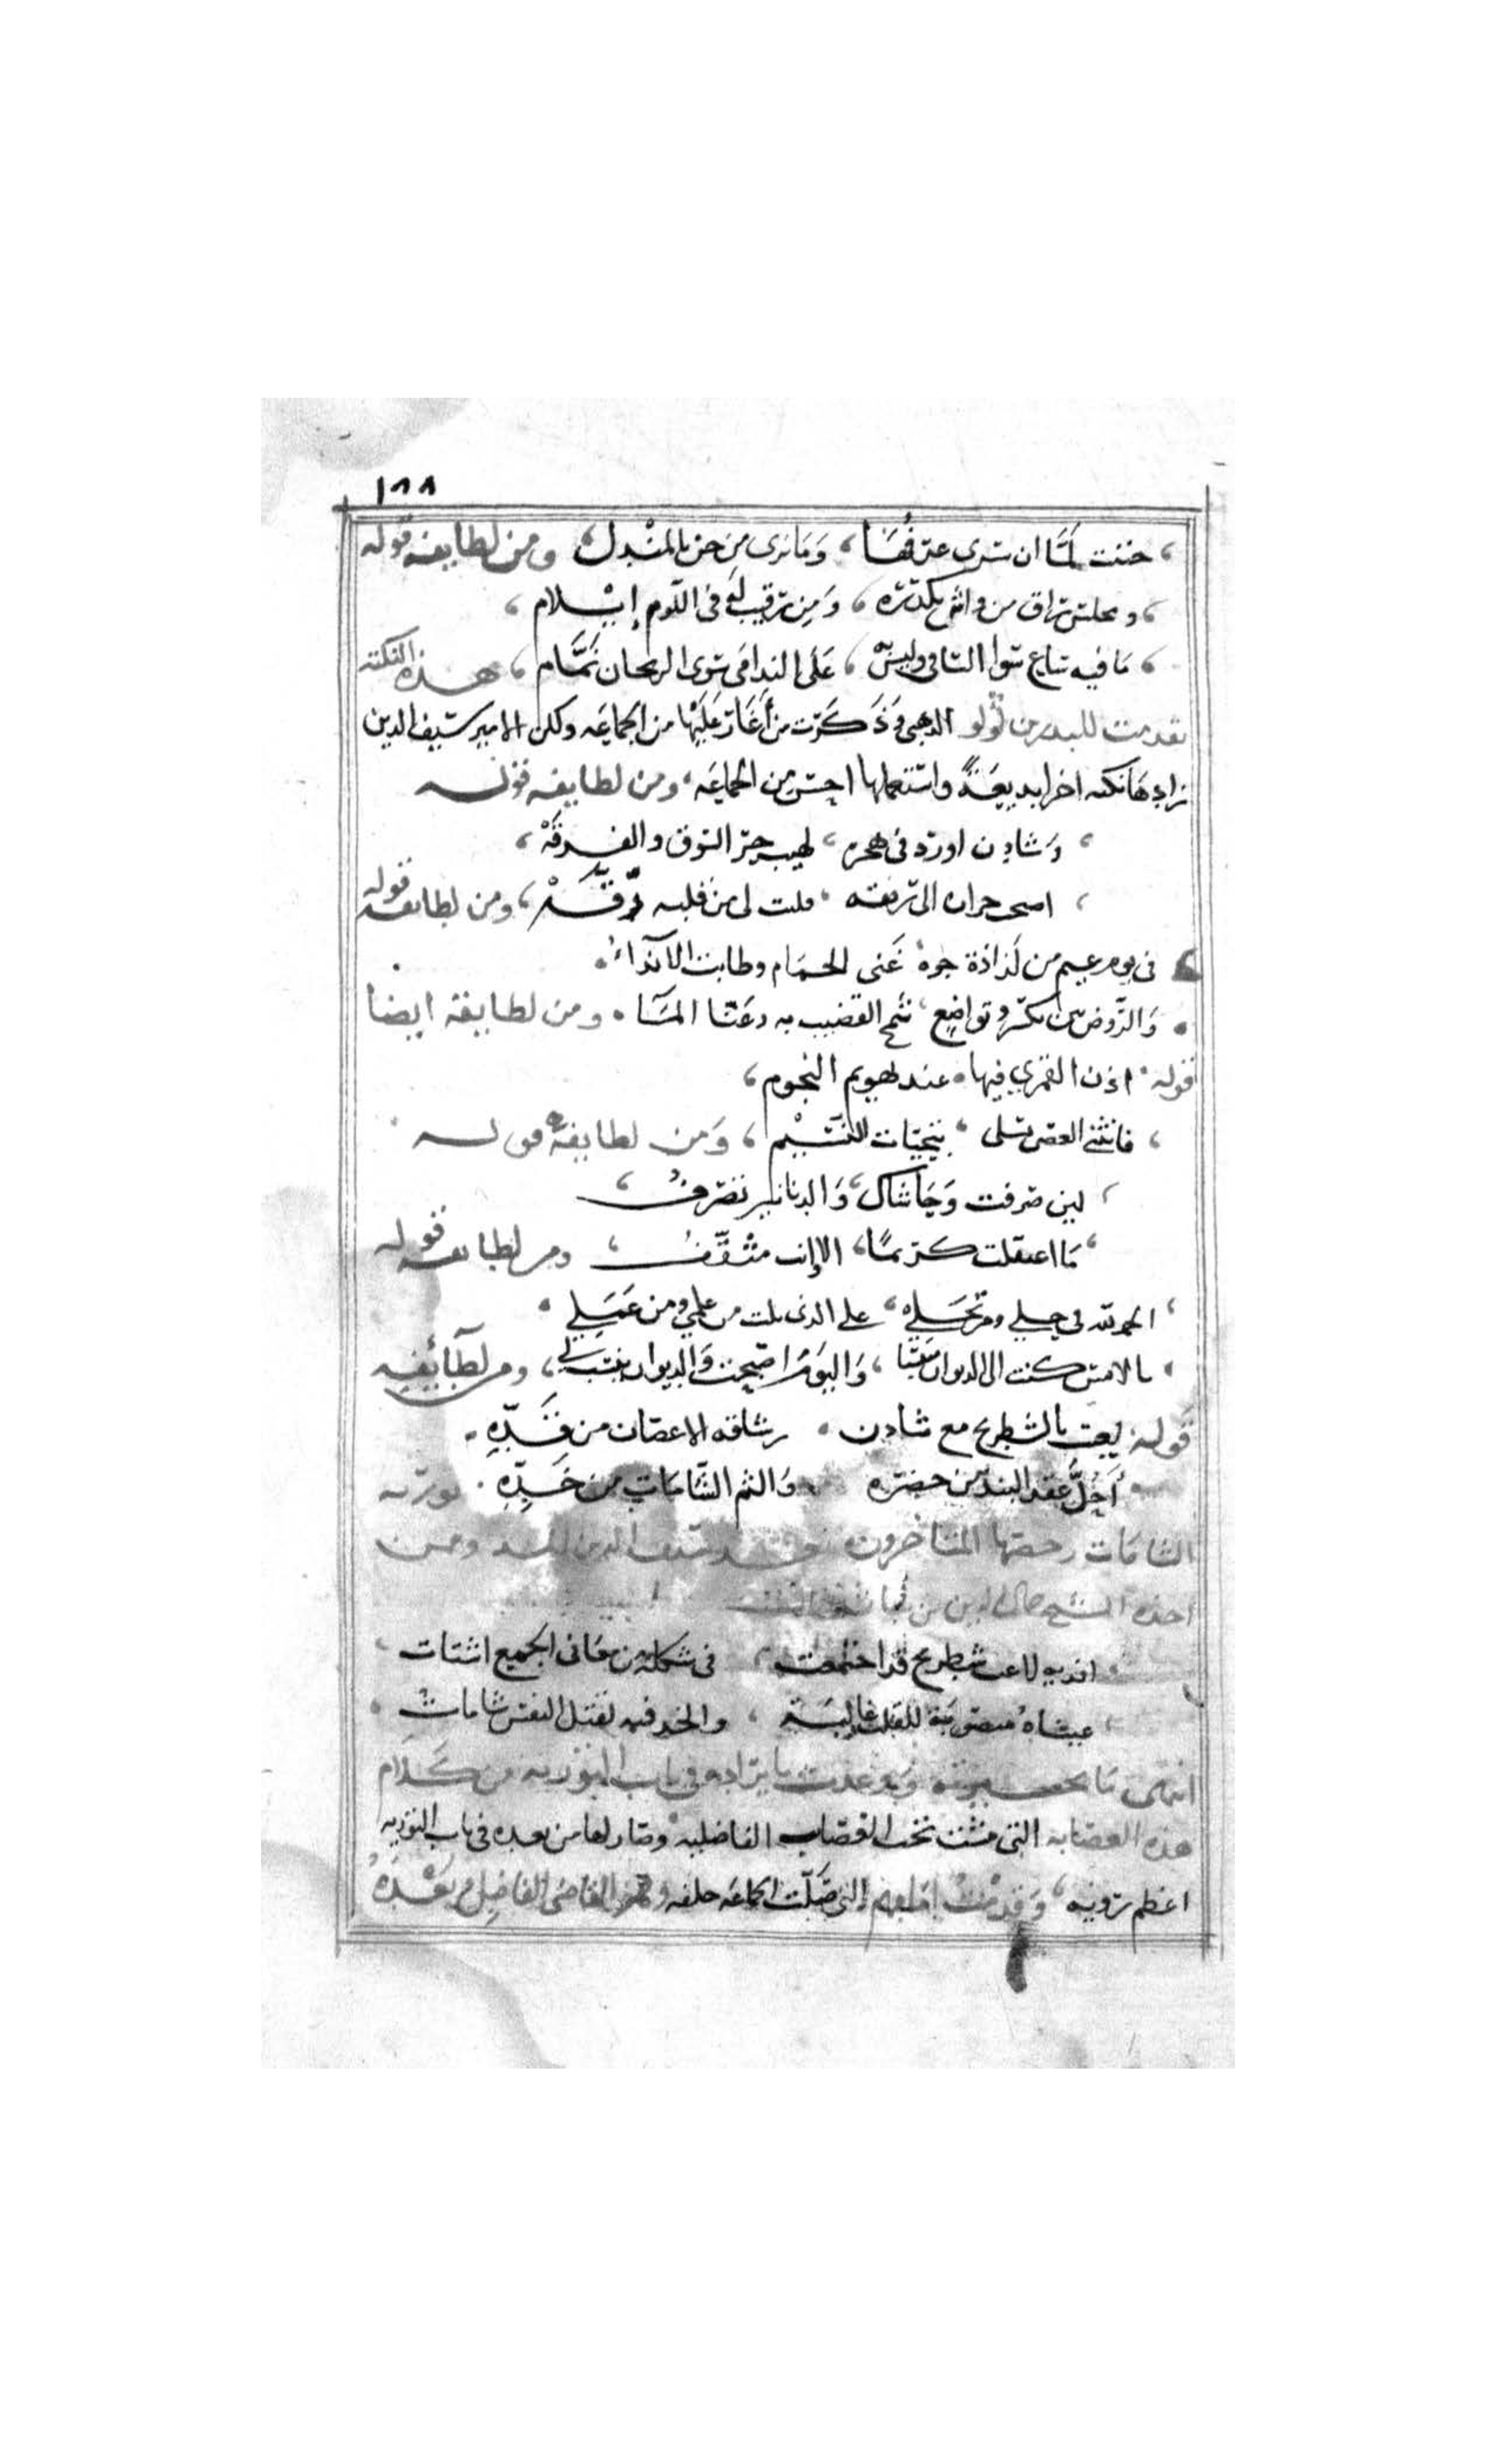 ١٨٨
، جننت لما ان سرى عرفها ، وما نرى من جن بالمندل ، ومن لطايفه قوله
، ومجلس راق من واش يكدره ، ومن رقيب له في اللوم إيلام ،
، ما فيه ساع سوا الساقي وليس به ، على الندامى سوى الريحان نمام ، هذه النكته
تقدمت للبدر بن لولو الذهبي وذكرت من أغار عليها من الجماعه ولكن الامير سيف الدين
زادها نكته اخرا بديعة واستعملها احسن من الجماعه ، ومن لطايفه قوله
، وشادن اورد في هجره ، لهيب حر الشوق والفرقه ،
، اصبح حرانا الى ريقه ، فليت لي من قلبه رقه ، ومن لطايفه قوله
في يوم غيم من لذاذة جوه ، غنى الحمام وطابت الانداء .
. والروض بين تكبر وتواضع ، شمخ القضيب به وخر الما . ومن لطايفه ايضا
قوله ، اذن القمري فيها ، عند تهويم النجوم ،
، فانثنى الغصن يصلى ، بتحيات النسيم ، ومن لطايفه قوله
، لين صرفت وحاشاك ، والدنانير تصرف ،
، ما اعتقلت كريما ، الا وانت مثقف ، ومن لطايفه قوله
، الحمد لله في حلي ومرتحلي ، على الذي نلت من علمي ومن عملي .
. بالامس كنت الى الديوان منتسبا ، واليوم اصبحت والديوان ينتسب لي ، ومن لطايفه
قوله لعبت بالشطرنج مع شادن . رشاقه الاغصان من قده .
. أحل عقد البند من خصره والثم الشامات من خده . تورية
الشامات رخصها المتاخرون بعد سيف الدين المشد وممن
اخذه الشيخ جمال الدين بن نباته فقال
افديه لاعب شطرنج قد اجتمعت ، في شكله من معاني الجميع اشتات ،
، عيناه منصوبة للقلب غالبة ، والخد فيه لقتل النفس شامات .
انتهى ما وعدت بايراده في باب التوريه من كلام
هذه العصابه التي مشت تحت العصايب الفاضليه وصار لها من بعده في باب التوريه
اعظم تروية ، وقد مت امامهم التي صلت الجماعه خلفه وهو القاضي الفاضل من بعده